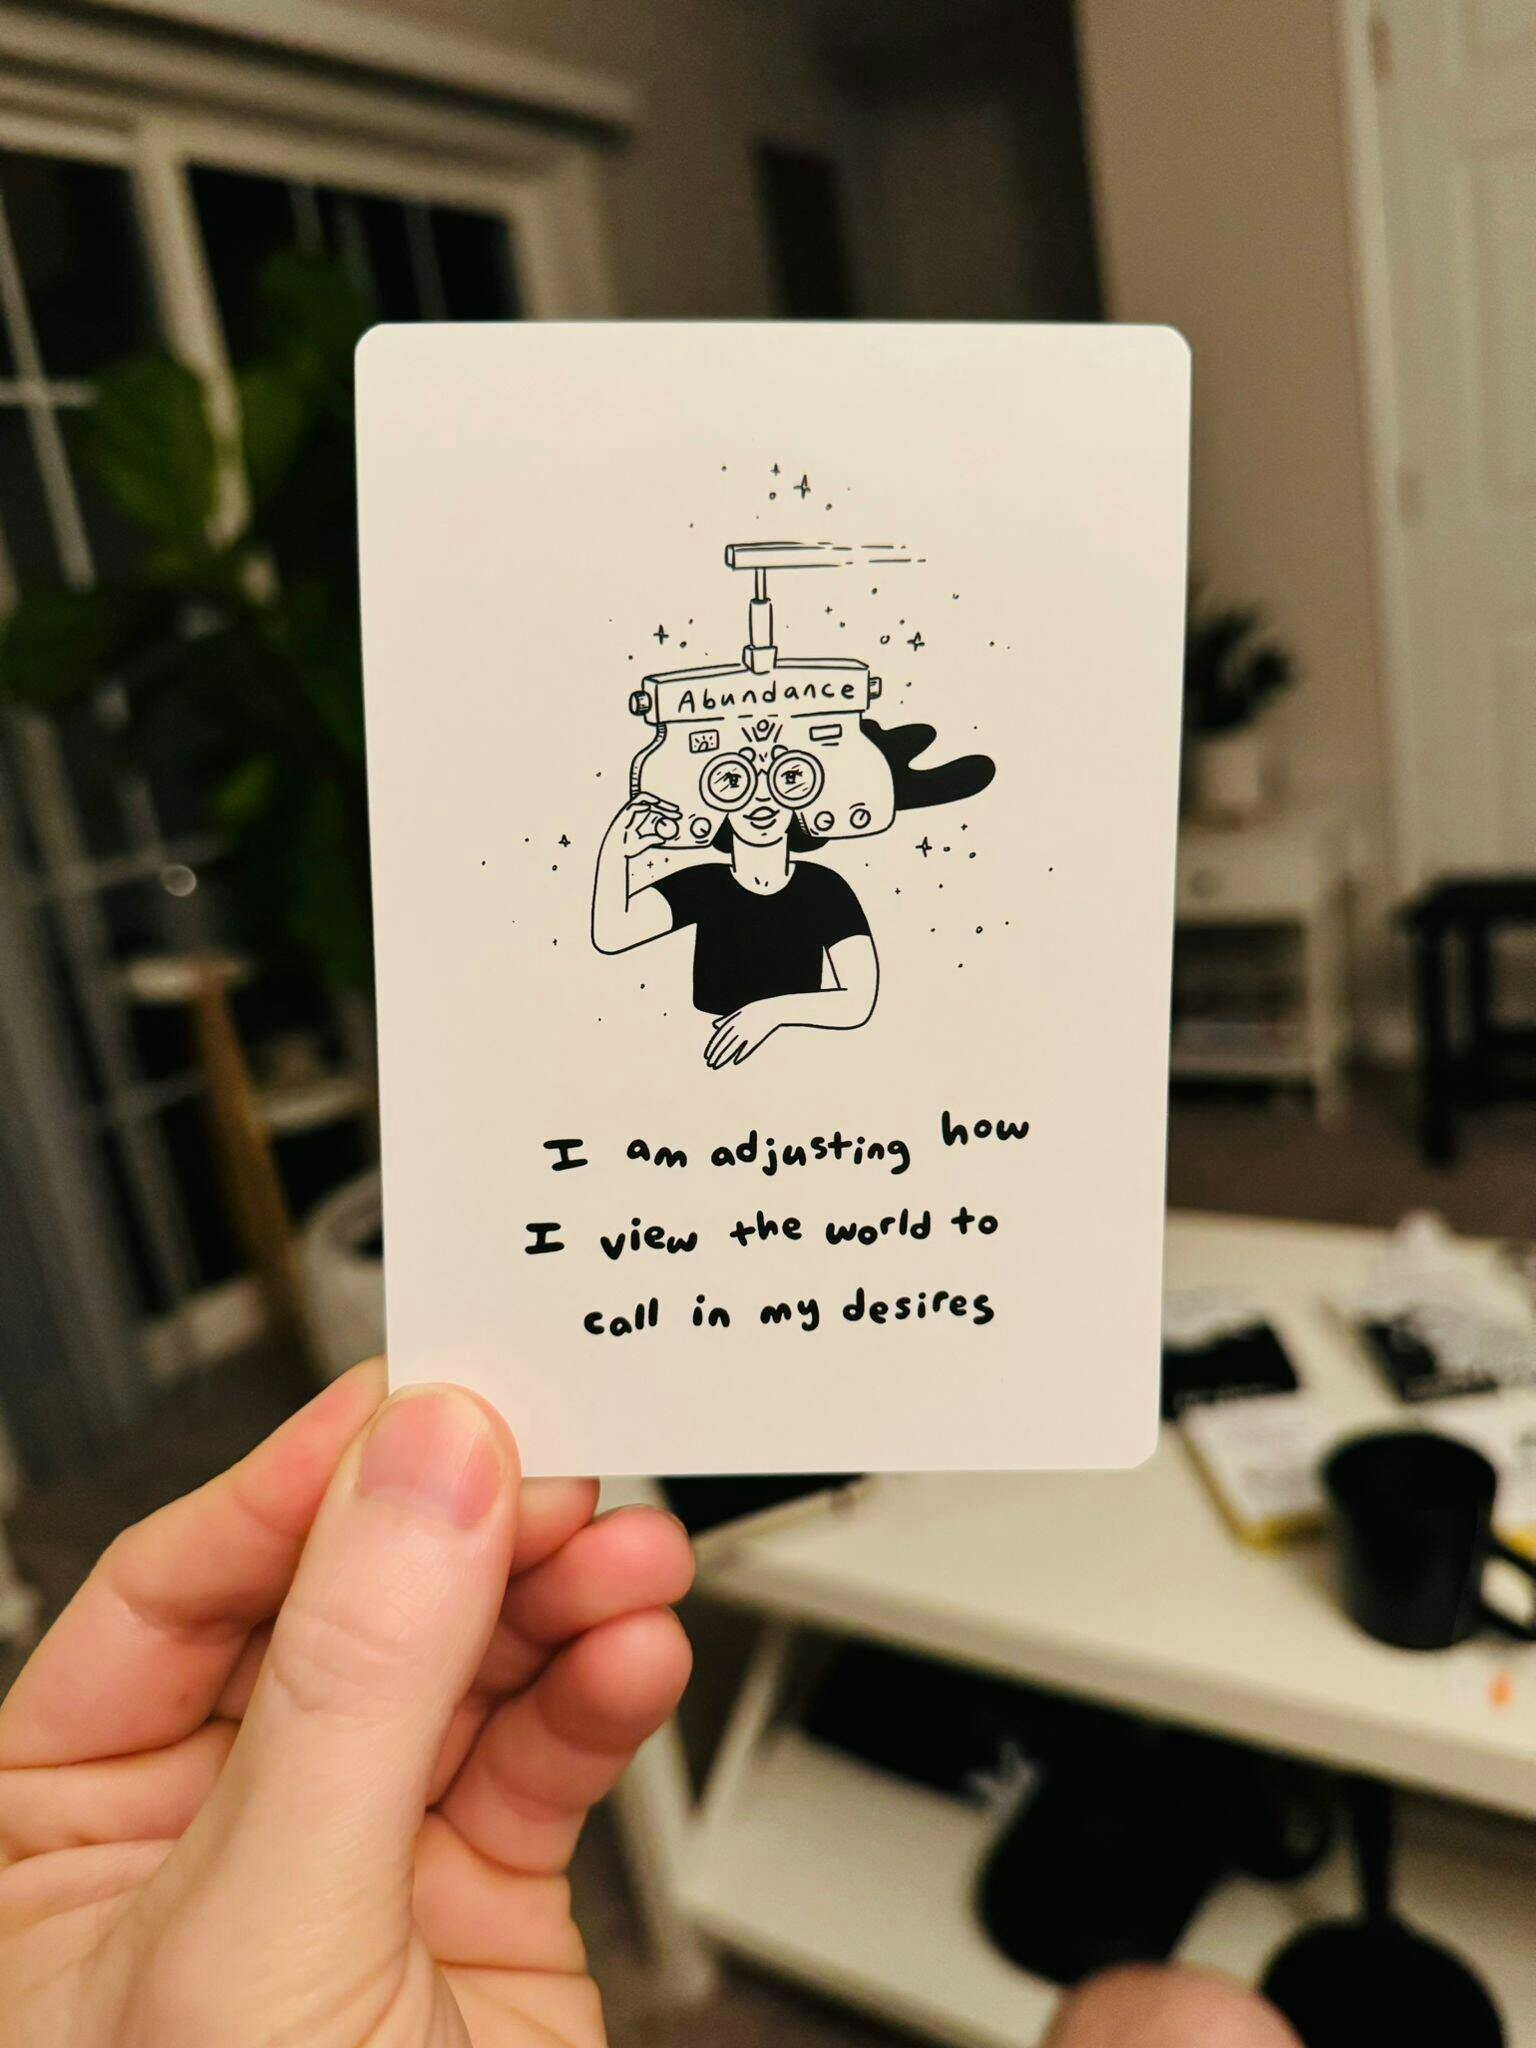 Abundance
I am adjusting how
I view the world to
call in my desires